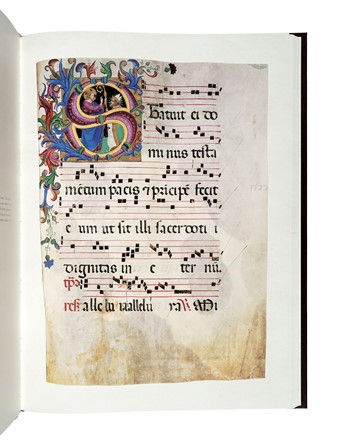 S tatuit ei do
minus testa
mētum pacis ⁊ pricipē fecit
e um ut sit illi sacerdoti i
dignitas in e ter nū.
alle lu valleluia